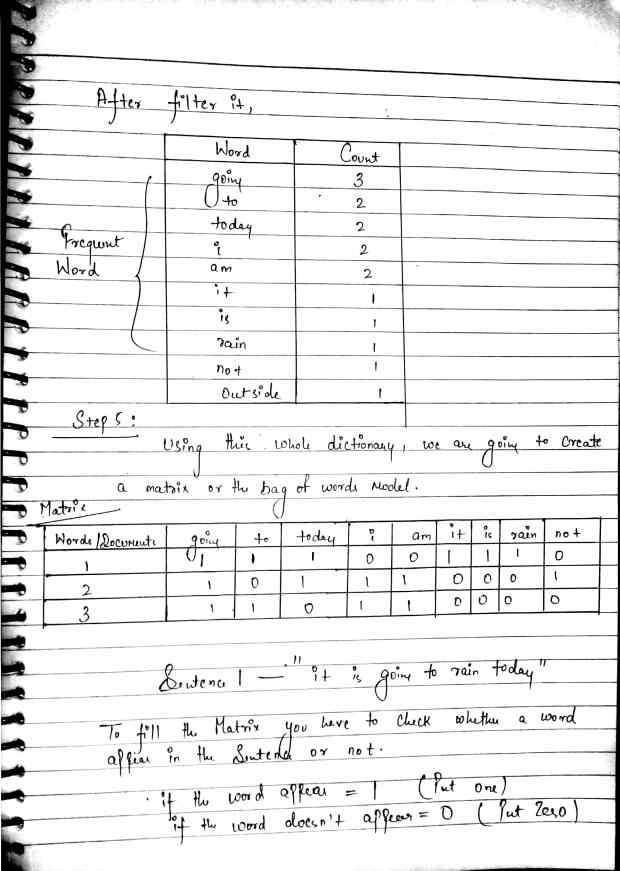 After filter it,
Word Count
going 3
to 2
today 2
Frequent Word
i 2
am 2
it 1
is 1
rain 1
not 1
outside 1
Step 5 :
Using this whole dictionary, we are going to create
a matrix or the bag of words Model.
Matrix
Words/Documents going to today i am it is rain not
1 1 1 1 0 0 1 1 1 0
2 1 0 1 1 1 0 0 0 1
3 1 1 0 1 1 0 0 0 0
Sentence 1 — "it is going to rain today"
To fill the Matrix you have to check whether a word
appear in the Sentence or not.
if the word appear = 1 (Put one)
if the word doesn't appear = 0 (Put Zero)